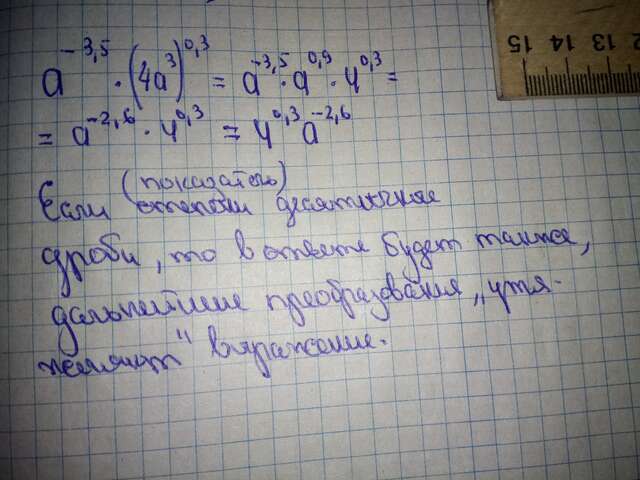 a^-3,5 · (4a^3)^0,3 = a^-3,5 · a^0,9 · 4^0,3 =
= a^-2,6 · 4^0,3 = 4^0,3 a^-2,6
(показатель)
Если степени десятичные
дроби, то в ответе будет также,
дальнейшие преобразования „утя-
желяют" выражение.
15 14 13 12